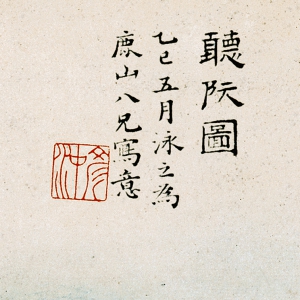 聽阮圖
乙巳五月泳之為
廉山八兄寫意